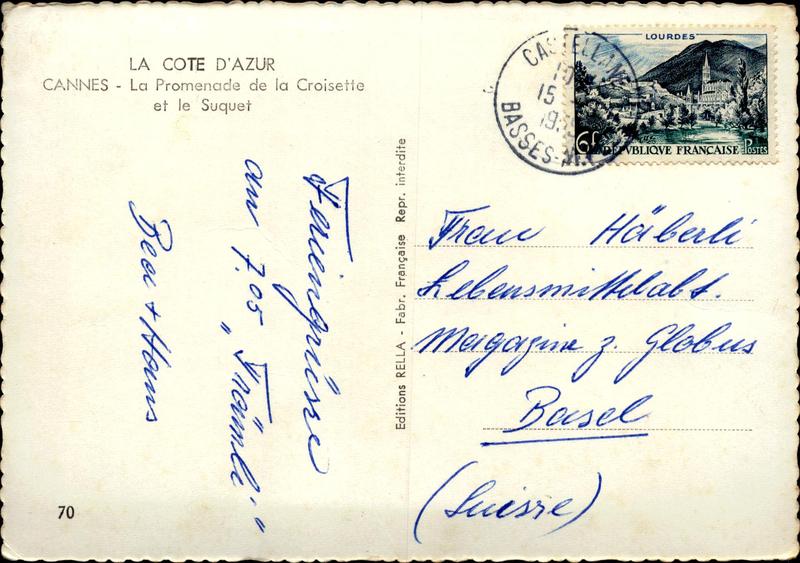 LA COTE D'AZUR
CANNES - La Promenade de la Croisette
et le Suquet
Feriengrüsse
an 7.05
"Fräumli"
Bea + Hans
70
Editions RELLA - Fabr. Française Repr. interdite
CASTELLANE
15
BASSES-
LOURDES
6f
REPVBLIQUE FRANÇAISE
POSTES
Frau Häberli
Lebensmittelabt.
Magazine z. Globus
Basel
(Suisse)